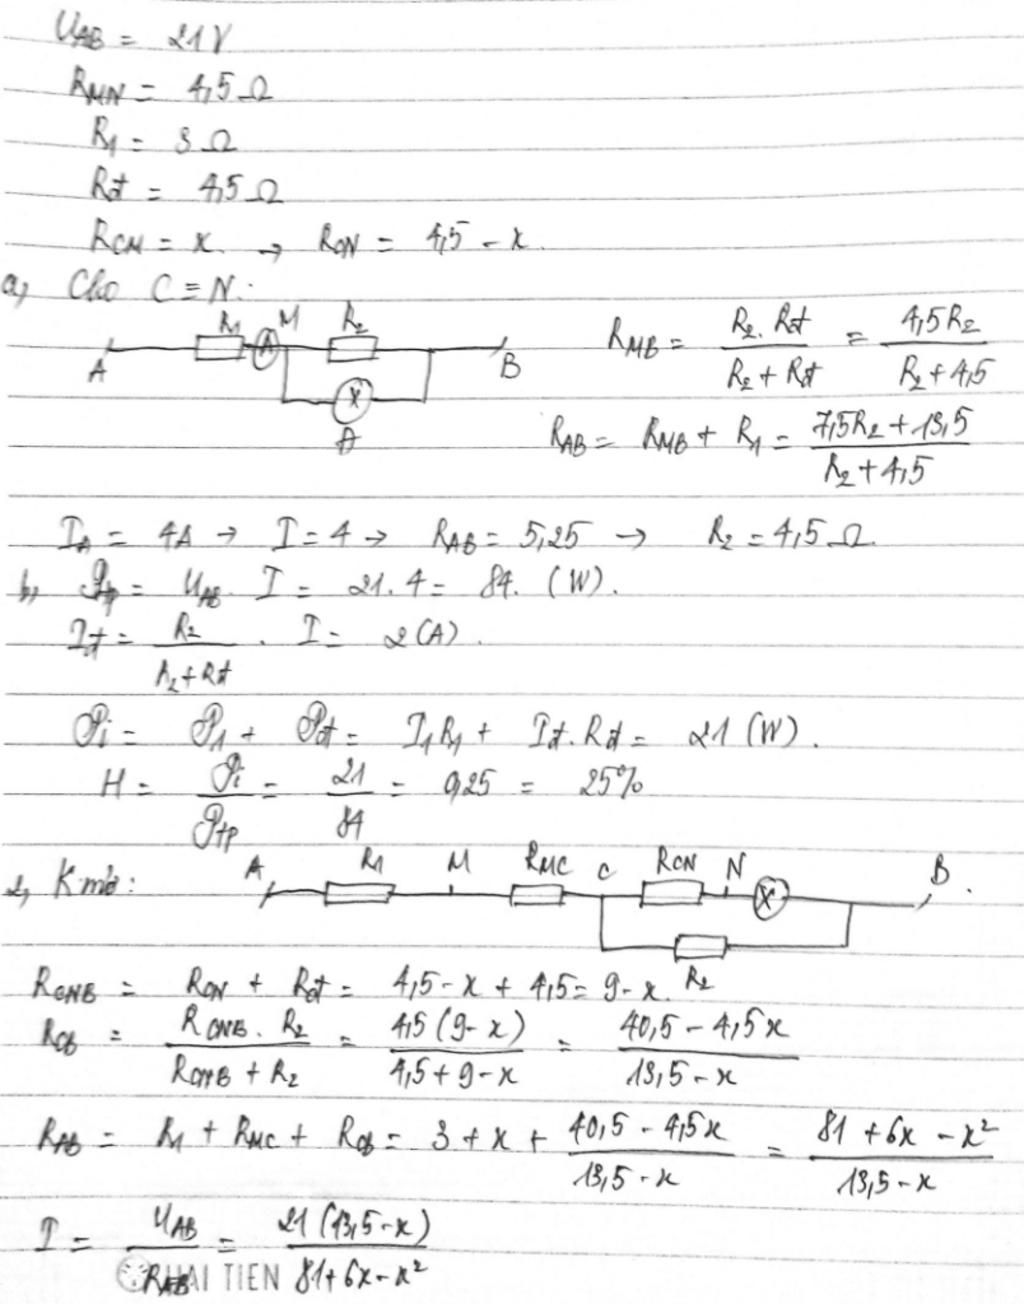 U_AB = 21V
R_MN = 4,5 Ω
R_1 = 3 Ω
R_đ = 4,5 Ω
R_CM = x. → R_CN = 4,5 - x.
a, Cho C ≡ N:
R_1 A M R_2
A B
X
Đ
R_MB = (R_2 . R_đ)/(R_2 + R_đ) = (4,5R_2)/(R_2 + 4,5)
R_AB = R_MB + R_1 = (7,5R_2 + 13,5)/(R_2 + 4,5)
I_A = 4A → I = 4 → R_AB = 5,25 → R_2 = 4,5 Ω.
b, P_tp = U_AB . I = 21.4 = 84. (W).
I_đ = R_2/(R_2 + R_đ) . I = 2 (A).
P_i = P_1 + P_đ = I_1 R_1 + I_đ . R_đ = 21 (W).
H = P_i/P_tp = 21/84 = 0,25 = 25%
2, K mở:
A R_1 M R_MC C R_CN N X B.
R_2
R_CNB = R_CN + R_đ = 4,5 - x + 4,5 = 9 - x.
R_CB = (R_CNB . R_2)/(R_CNB + R_2) = (4,5 (9 - x))/(4,5 + 9 - x) = (40,5 - 4,5x)/(13,5 - x)
R_AB = R_1 + R_MC + R_CB = 3 + x + (40,5 - 4,5x)/(13,5 - x) = (81 + 6x - x²)/(13,5 - x)
I = U_AB/R_AB = (21 (13,5 - x))/(81 + 6x - x²)
HAI TIEN